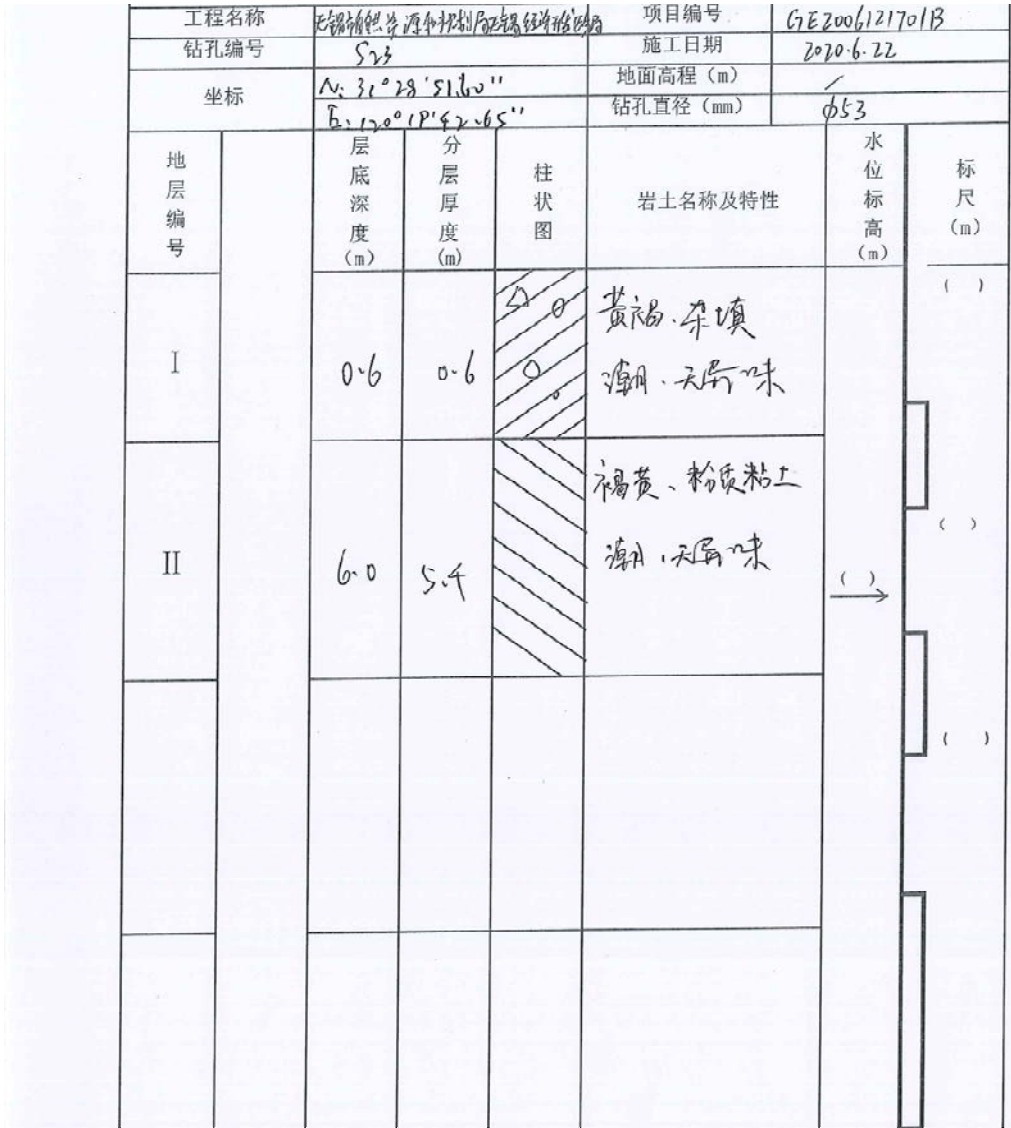 工程名称 无锡市自然资源和规划局无锡经济开发区分局 项目编号 GE2006121701B
钻孔编号 S23 施工日期 2020.6.22
坐标 N: 31°28'51.60" 地面高程（m） /
E: 120°18'42.65" 钻孔直径（mm） φ53
地层编号 层底深度(m) 分层厚度(m) 柱状图 岩土名称及特性 水位标高(m) 标尺(m)
( )
I 0.6 0.6 黄褐、杂填
潮、无异味
褐黄、粉质粘土
( )
II 6.0 5.4 潮、无异味
( )
( )